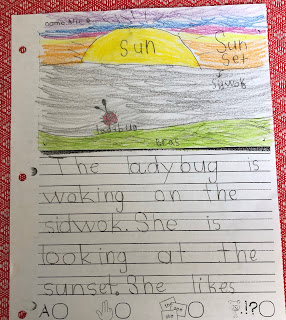 name
sun
Sun
Set
Sidwok
ladabug
gras
The ladybug is
woking on the
sidwok. She is
looking at the
sunset. She likes
A
.!?